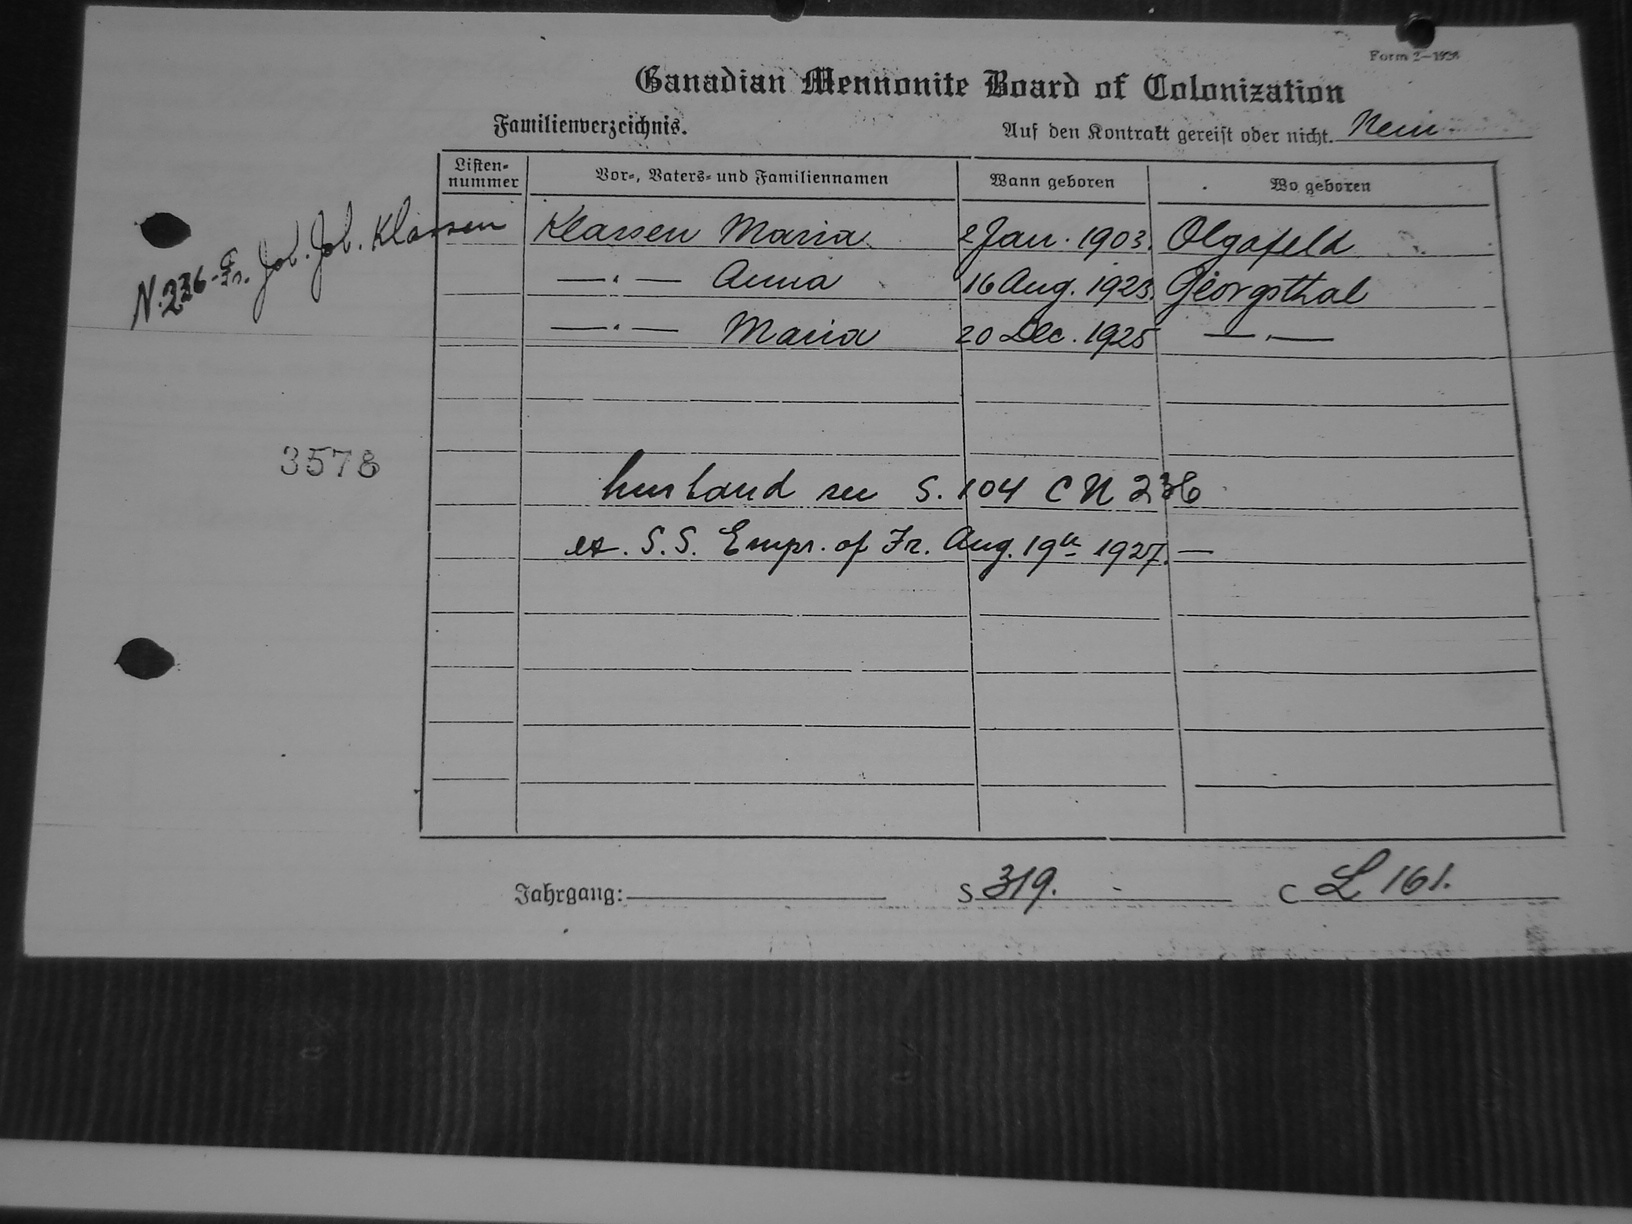 Form 2—1926
Canadian Mennonite Board of Colonization
Familienverzeichnis. Auf den Kontrakt gereist oder nicht. Nein
Listen-nummer Vor-, Vaters- und Familiennamen Wann geboren Wo geboren
N. 236 - Fr. Joh. Joh. Klassen
Klassen Maria 2 Jan. 1903. Olgafeld
—"— Anna 16 Aug. 1923. Georgsthal
—"— Maria 20 Dec. 1925 —"—
3578
husband see S. 104 CN 236
ex. S.S. Empr. of Fr. Aug. 19th 1927. —
Jahrgang: S 319. C L 161.